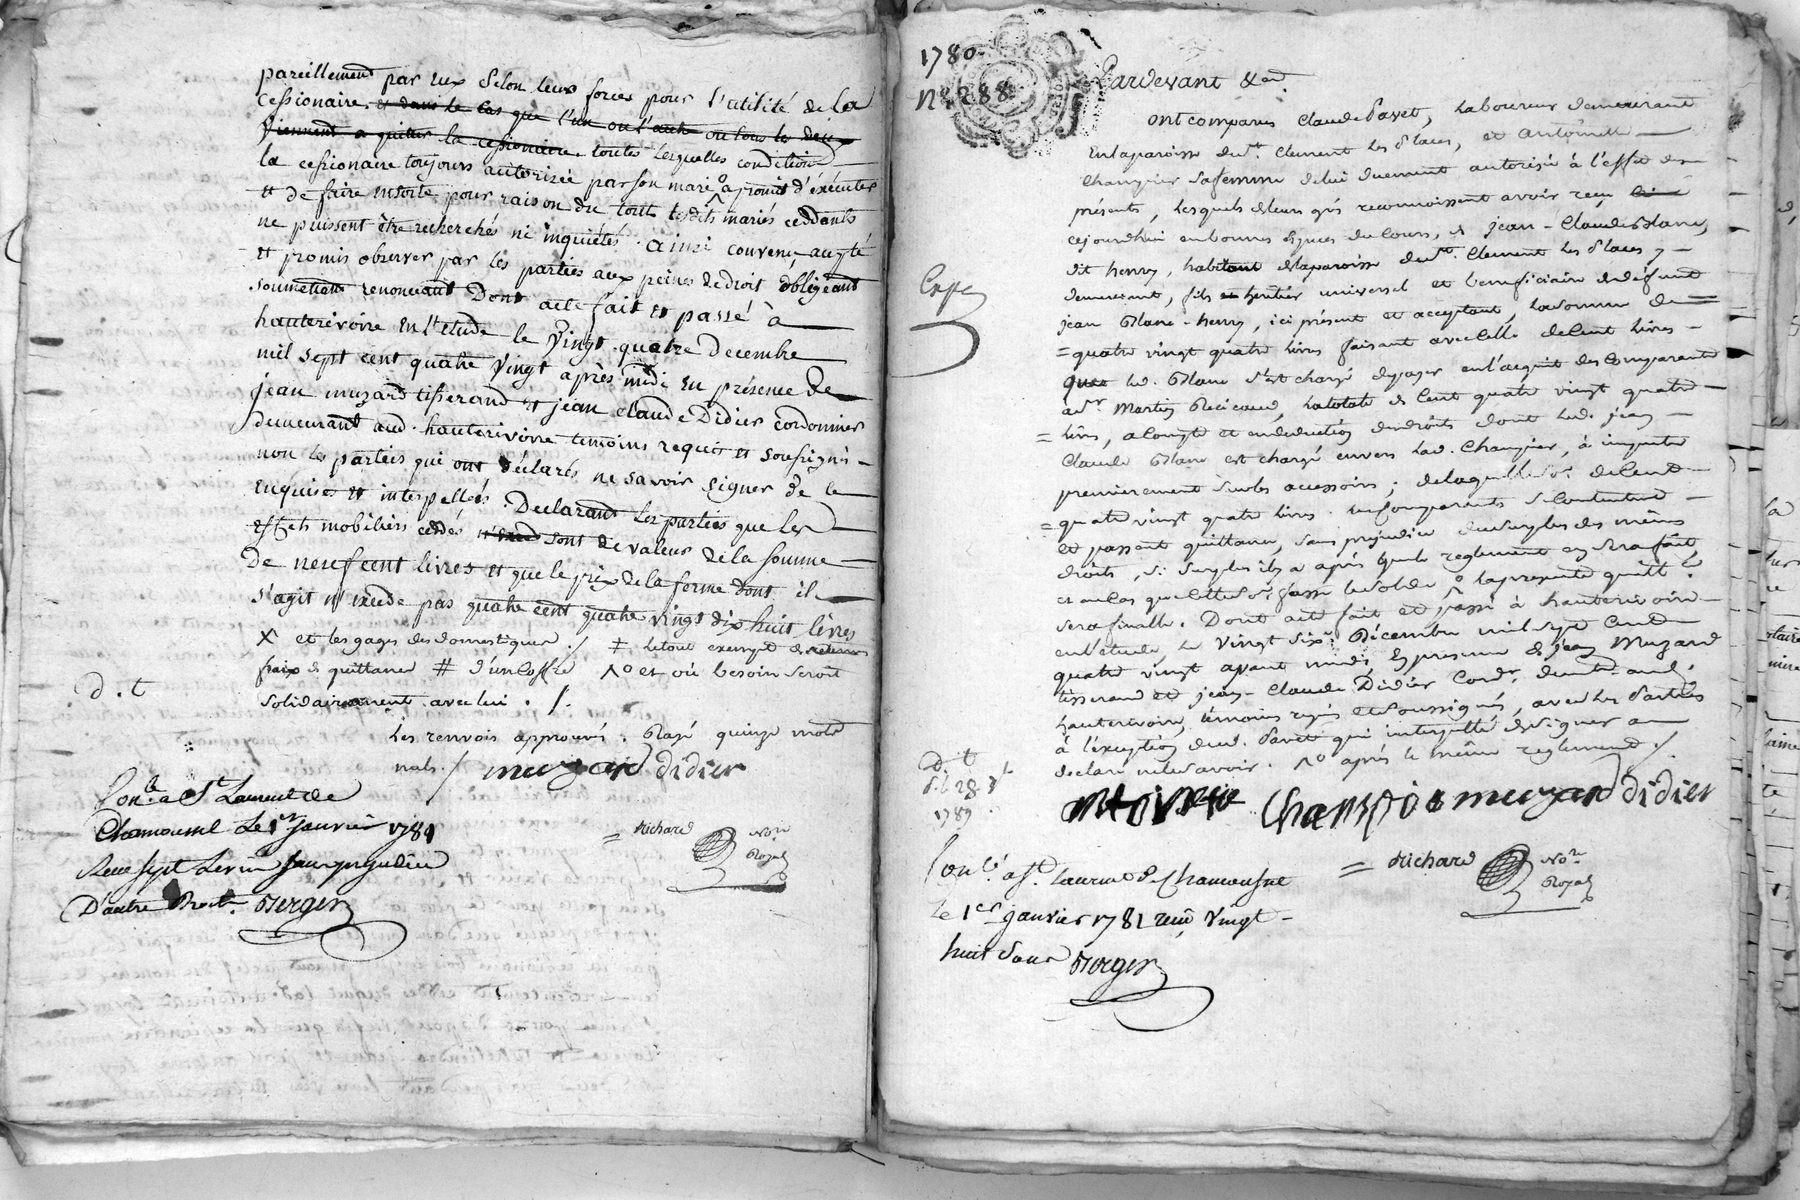 pareillement par eux selon leurs forces pour l'utilité de la
cessionaire. et dans le cas que l'un ou l'autre ou tous les deux
viennent a quitter la cessionaire. toutes lesquelles conditions
la cessionaire toujours autorizée par son mari a promit d'éxécuter
et de faire ensorte pour raison du tout lesdits mariés cédants
ne puissent être recherchés ni inquiétés. ainsi convenu, accpté
et promis observer par les parties aux peines de droit obligeant
soumettant renonceant Dont acte fait et passé à
hauterivoire en l'etude le vingt quatre Decembre
mil sept cent quatre vingt après midi en présence de
jean muzard tisserand et jean claude Didier cordonnier
demeurant aud. hauterivoire temoins requis et sousignés
non les parties qui ont déclarés ne savoir signer de ce
enquises et interpellées. Declarant les parties que les
effets mobiliers cédés sont de valeur de la somme
De neuf cent livres et que le prix de la ferme dont il
s'agit n'exede pas quatre cent quatre vingt dix huit livres
X et les gages des domestiques ./ ‡ le tout exempt de
fraix de quittance # d'un coffre ^o et où besoin seroit
d. t
solidairement avec lui ./.
Les renvois approuvés. Rayé quinze mots
nuls ./ muzard didier
Con.lé a St Laurent de
Chamousset Le 1er Janvier 1781
Reçu sept livres sans prejudice
D'autre Droit. Berger
= Richard Nore
Royal
1780
No. 288
Pardevant &a.
ont comparus Claude Pavet, laboureur demeurant
en la paroisse de St. Clement les Places, et antoinette
Champier sa femme de lui duement autorisée à l'effet des
présents, lesquels de leurs grés reconnoissent avoir reçu
cejourdhui en bonnes espèces de cours, de jean-Claude Blanc,
dit henry, habitant de la paroisse de St. Clement les Places y
demeurant, fils et heritier universel et beneficiaire de défunt
jean Blanc-henry, ici présent et acceptant, la somme de
= quatre vingt quatre livres faisant avec celle de Cent livres
Expé
que led. Blanc s'est chargé de payer en l'acquit des comparants
a Sr. Martin, la totale de Cent quatre vingt quatre
= livres, a compte et en deduction des droits dont led. jean
Claude Blanc est chargé envers lad. Champier, à imputer
premierement sur les accessoires; de laquelle so.e de Cent
= quatre vingt quatre livres. les comparants se contentent
et passent quittance, sans prejudice du surplus des mêmes
droits, si surplus il y a après quele reglement en sera fait,
et au cas que cette so.e fasse le solde ^o la presente quitt.ce
sera finalle. Dont acte fait et passé à hauterivoire
en l'étude, le vingt six Décembre mil sept cent
quatre vingt avant midi, En presence de jean Muzard
tisserand et jean-Claude Didier Cord.r demts. aud.
hauterivoire, témoins requis et soussignés, avec les Parties
à l'exception dud. Pavet qui interpellé de signer a
declaré ne le savoir. ^o après le même reglement ./.
d. t
1781
antoinette Champier muzard didier
= Richard No.re
Royal
Con.lé a St. Laurent de Chamousset
le 1er janvier 1781 reçu vingt
huit sous Berger